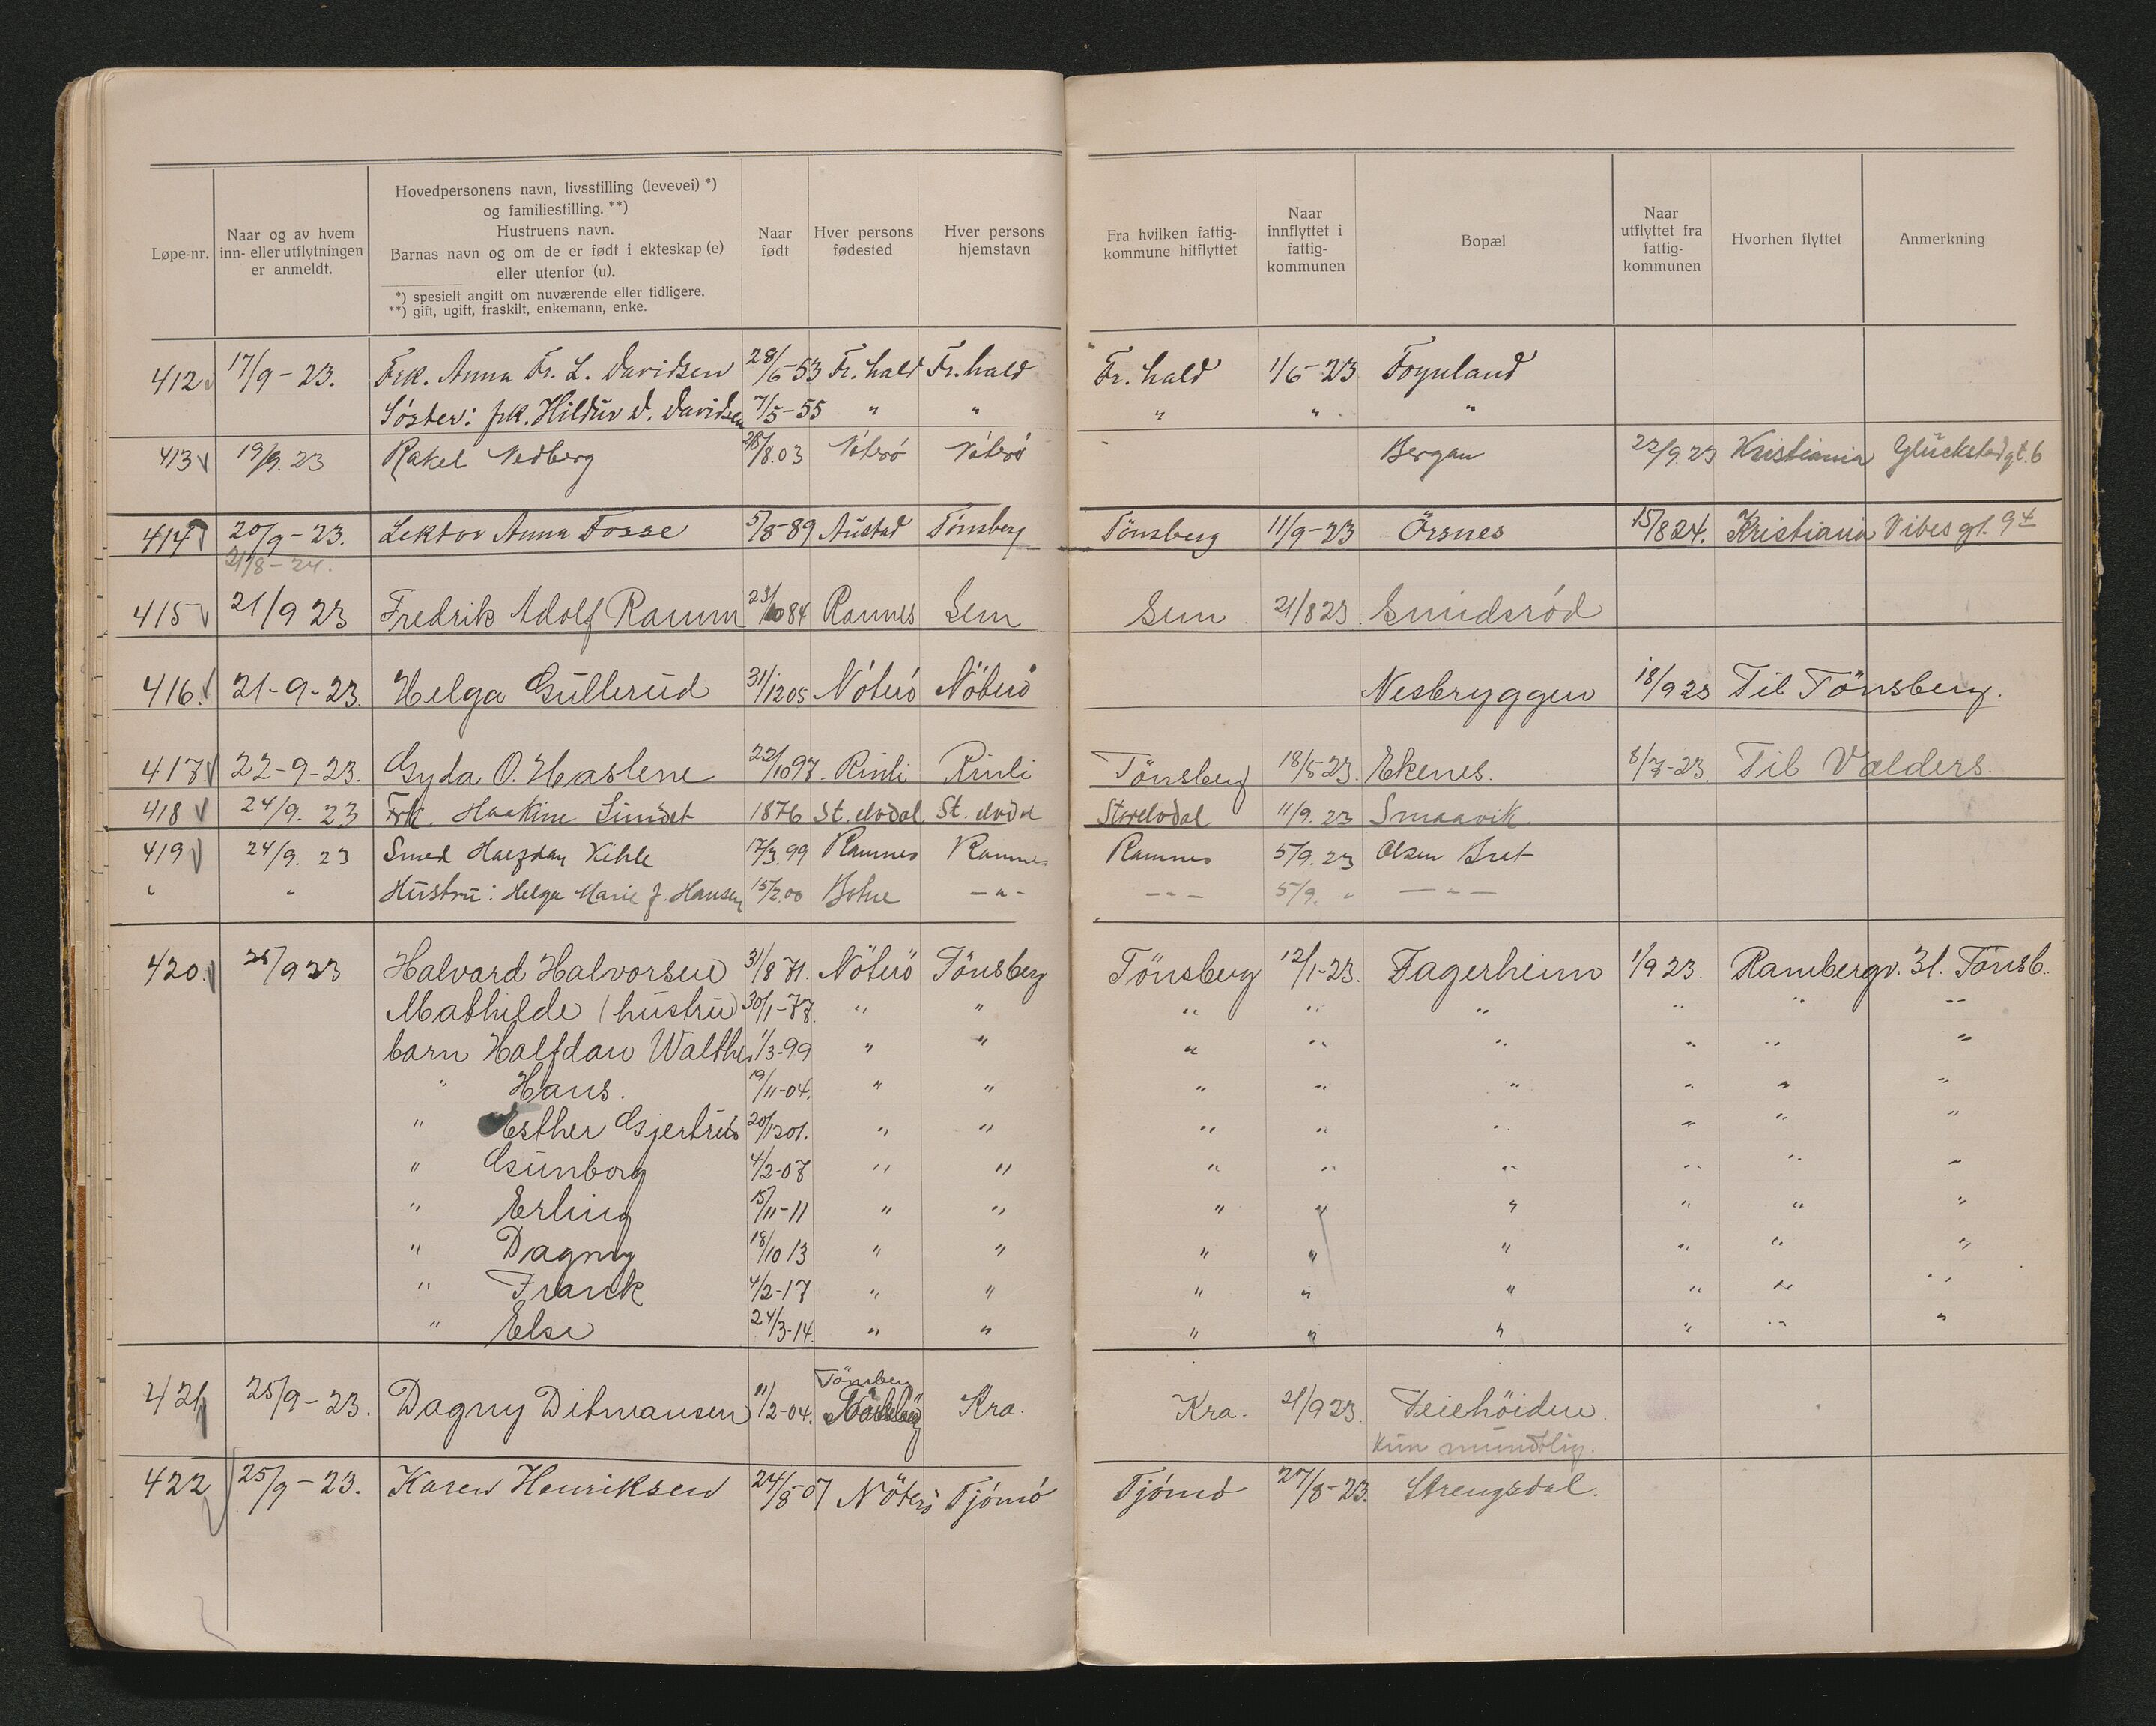 Løpe-nr.
Naar og av hvem
inn- eller utflytningen
er anmeldt.
Hovedpersonens navn, livsstilling (levevei) *)
og familiestilling. **)
Hustruens navn.
Barnas navn og om de er født i ekteskap (e)
eller utenfor (u).
*) spesielt angitt om nuværende eller tidligere.
**) gift, ugift, fraskilt, enkemann, enke.
Naar
født
Hver persons
fødested
Hver persons
hjemstavn
Fra hvilken fattig-
kommune hitflyttet
Naar
innflyttet i
fattig-
kommunen
Bopæl
Naar
utflyttet fra
fattig-
kommunen
Hvorhen flyttet
Anmerkning
412 17/9-23. Frk. Anna Fr. L. Davidsen 28/6-53 Fr.hald Fr.hald Fr.hald 1/6-23 Foynland
Söster: frk. Hildur D. Davidsen 7/5-55 " " " " "
413 19/9.23 Rakel Vedberg 28/8.03 Nöterö Nöterö Bergan 22/9.23 Kristiania Glückstadgt.6
414 20/9-23. Lektor Anna Fosse 5/8-89 Austad Tönsberg Tönsberg 11/9-23 Örsnes 15/824. Kristiania Vibesgt. 9
21/8-24.
415 21/9 23 Fredrik Adolf Ramm 23/10 84 Ramnes Sem Sem 21/823 Smidsröd
416. 21-9-23. Helga Gullerud 31/1205 Nöterö Nöterö Nesbryggen 18/9 23 Til Tönsberg.
417. 22-9-23. Gyda O. Haslene 22/1097 Rinli Rinli Tönsberg 18/523. Ekenes. 8/7-23. Til Valders.
418 24/9. 23 Frk. Haakine Sundet 1876 St. elvdal St. elvdal Storelvdal 11/9.23 Smaavik
419 24/9. 23 Smed Halfdan Kihle 17/3.99 Ramnes Ramnes Ramnes 5/9.23 Olsen Bret
" " Hustru: Helga Marie J. Hansen 15/2.00 Botne -"- --- 5/9. " -"-
420. 25/923 Halvard Halvorsen 31/8 71. Nöterö Tönsberg Tönsberg 12/1-23. Fagerheim 1/9 23. Rambergv. 31. Tönsb.
Mathilde (hustru) 30/1-77. " " " " " " " "
barn Halfdan Walther 1/3-99 " " " " " " " "
" Hans. 19/11-04. " " " " " " " "
" Esther Gjertrud 20/1201. " " " " " " " "
" Gunborg 4/2-07 " " " " " " " "
" Erling 15/11-11 " " " " " " " "
" Dagny 18/10 13 " " " " " " " "
" Frank 4/2-17 " " " " " " " "
" Else 24/3-14. " " " " " " " "
421 25/9-23. Dagny Ditmansen 11/2-04. Tönsberg Kra. Kra. 21/923. Teiehöiden.
kun mundtlig.
422 25/9-23. Karen Henriksen 24/8-07 Nöterö Tjömö Tjömö 27/8-23. Strengsdal.